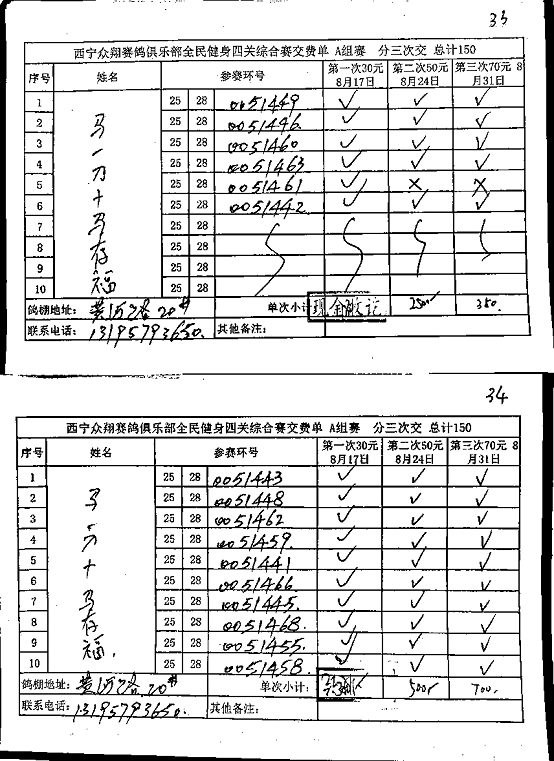 33
西宁众翔赛鸽俱乐部全民健身四关综合赛交费单 A组赛 分三次交 总计150
序号 姓名 参赛环号 第一次30元 8月17日 第二次50元 8月24日 第三次70元 8月31日
1 25 28 0051449 ✓ ✓ ✓
2 25 28 0051446 ✓ ✓ ✓
3 25 28 0051460 ✓ ✓ ✓
4 25 28 0051463 ✓ ✓ ✓
5 25 28 0051461 ✓ × ×
6 25 28 0051442 ✓ ✓ ✓
7 25 28
8 25 28
9 25 28
10 25 28
马一力+马存福
鸽棚地址: 黄河路20# 单次小计 现金收讫 250 350.
联系电话: 13195793650. 其他备注:
34
西宁众翔赛鸽俱乐部全民健身四关综合赛交费单 A组赛 分三次交 总计150
序号 姓名 参赛环号 第一次30元 8月17日 第二次50元 8月24日 第三次70元 8月31日
1 25 28 0051443 ✓ ✓ ✓
2 25 28 0051448 ✓ ✓ ✓
3 25 28 0051462 ✓ ✓ ✓
4 25 28 0051459. ✓ ✓ ✓
5 25 28 0051441 ✓ ✓ ✓
6 25 28 0051466 ✓ ✓ ✓
7 25 28 0051445. ✓ ✓ ✓
8 25 28 0051468. ✓ ✓ ✓
9 25 28 0051455. ✓ ✓ ✓
10 25 28 0051458. ✓ ✓ ✓
马一力+马存福.
鸽棚地址: 黄河路20# 单次小计: 500 700.
联系电话: 13195793650. 其他备注: